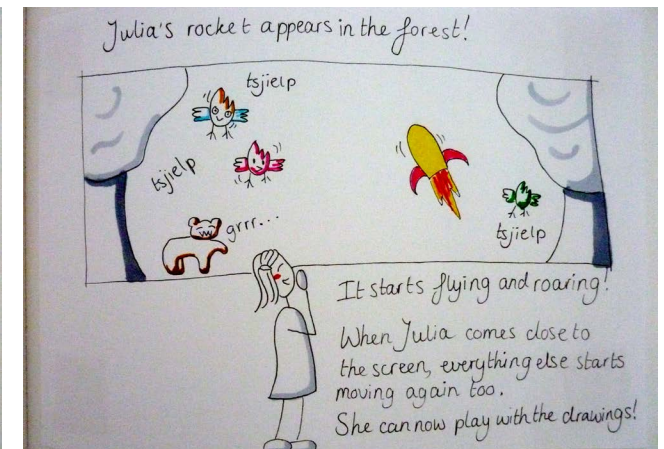 Julia's rocket appears in the forest!
tsjielp
tsjielp
grrr...
tsjielp
It starts flying and roaring!
When Julia comes close to
the screen, everything else starts
moving again too.
She can now play with the drawings!